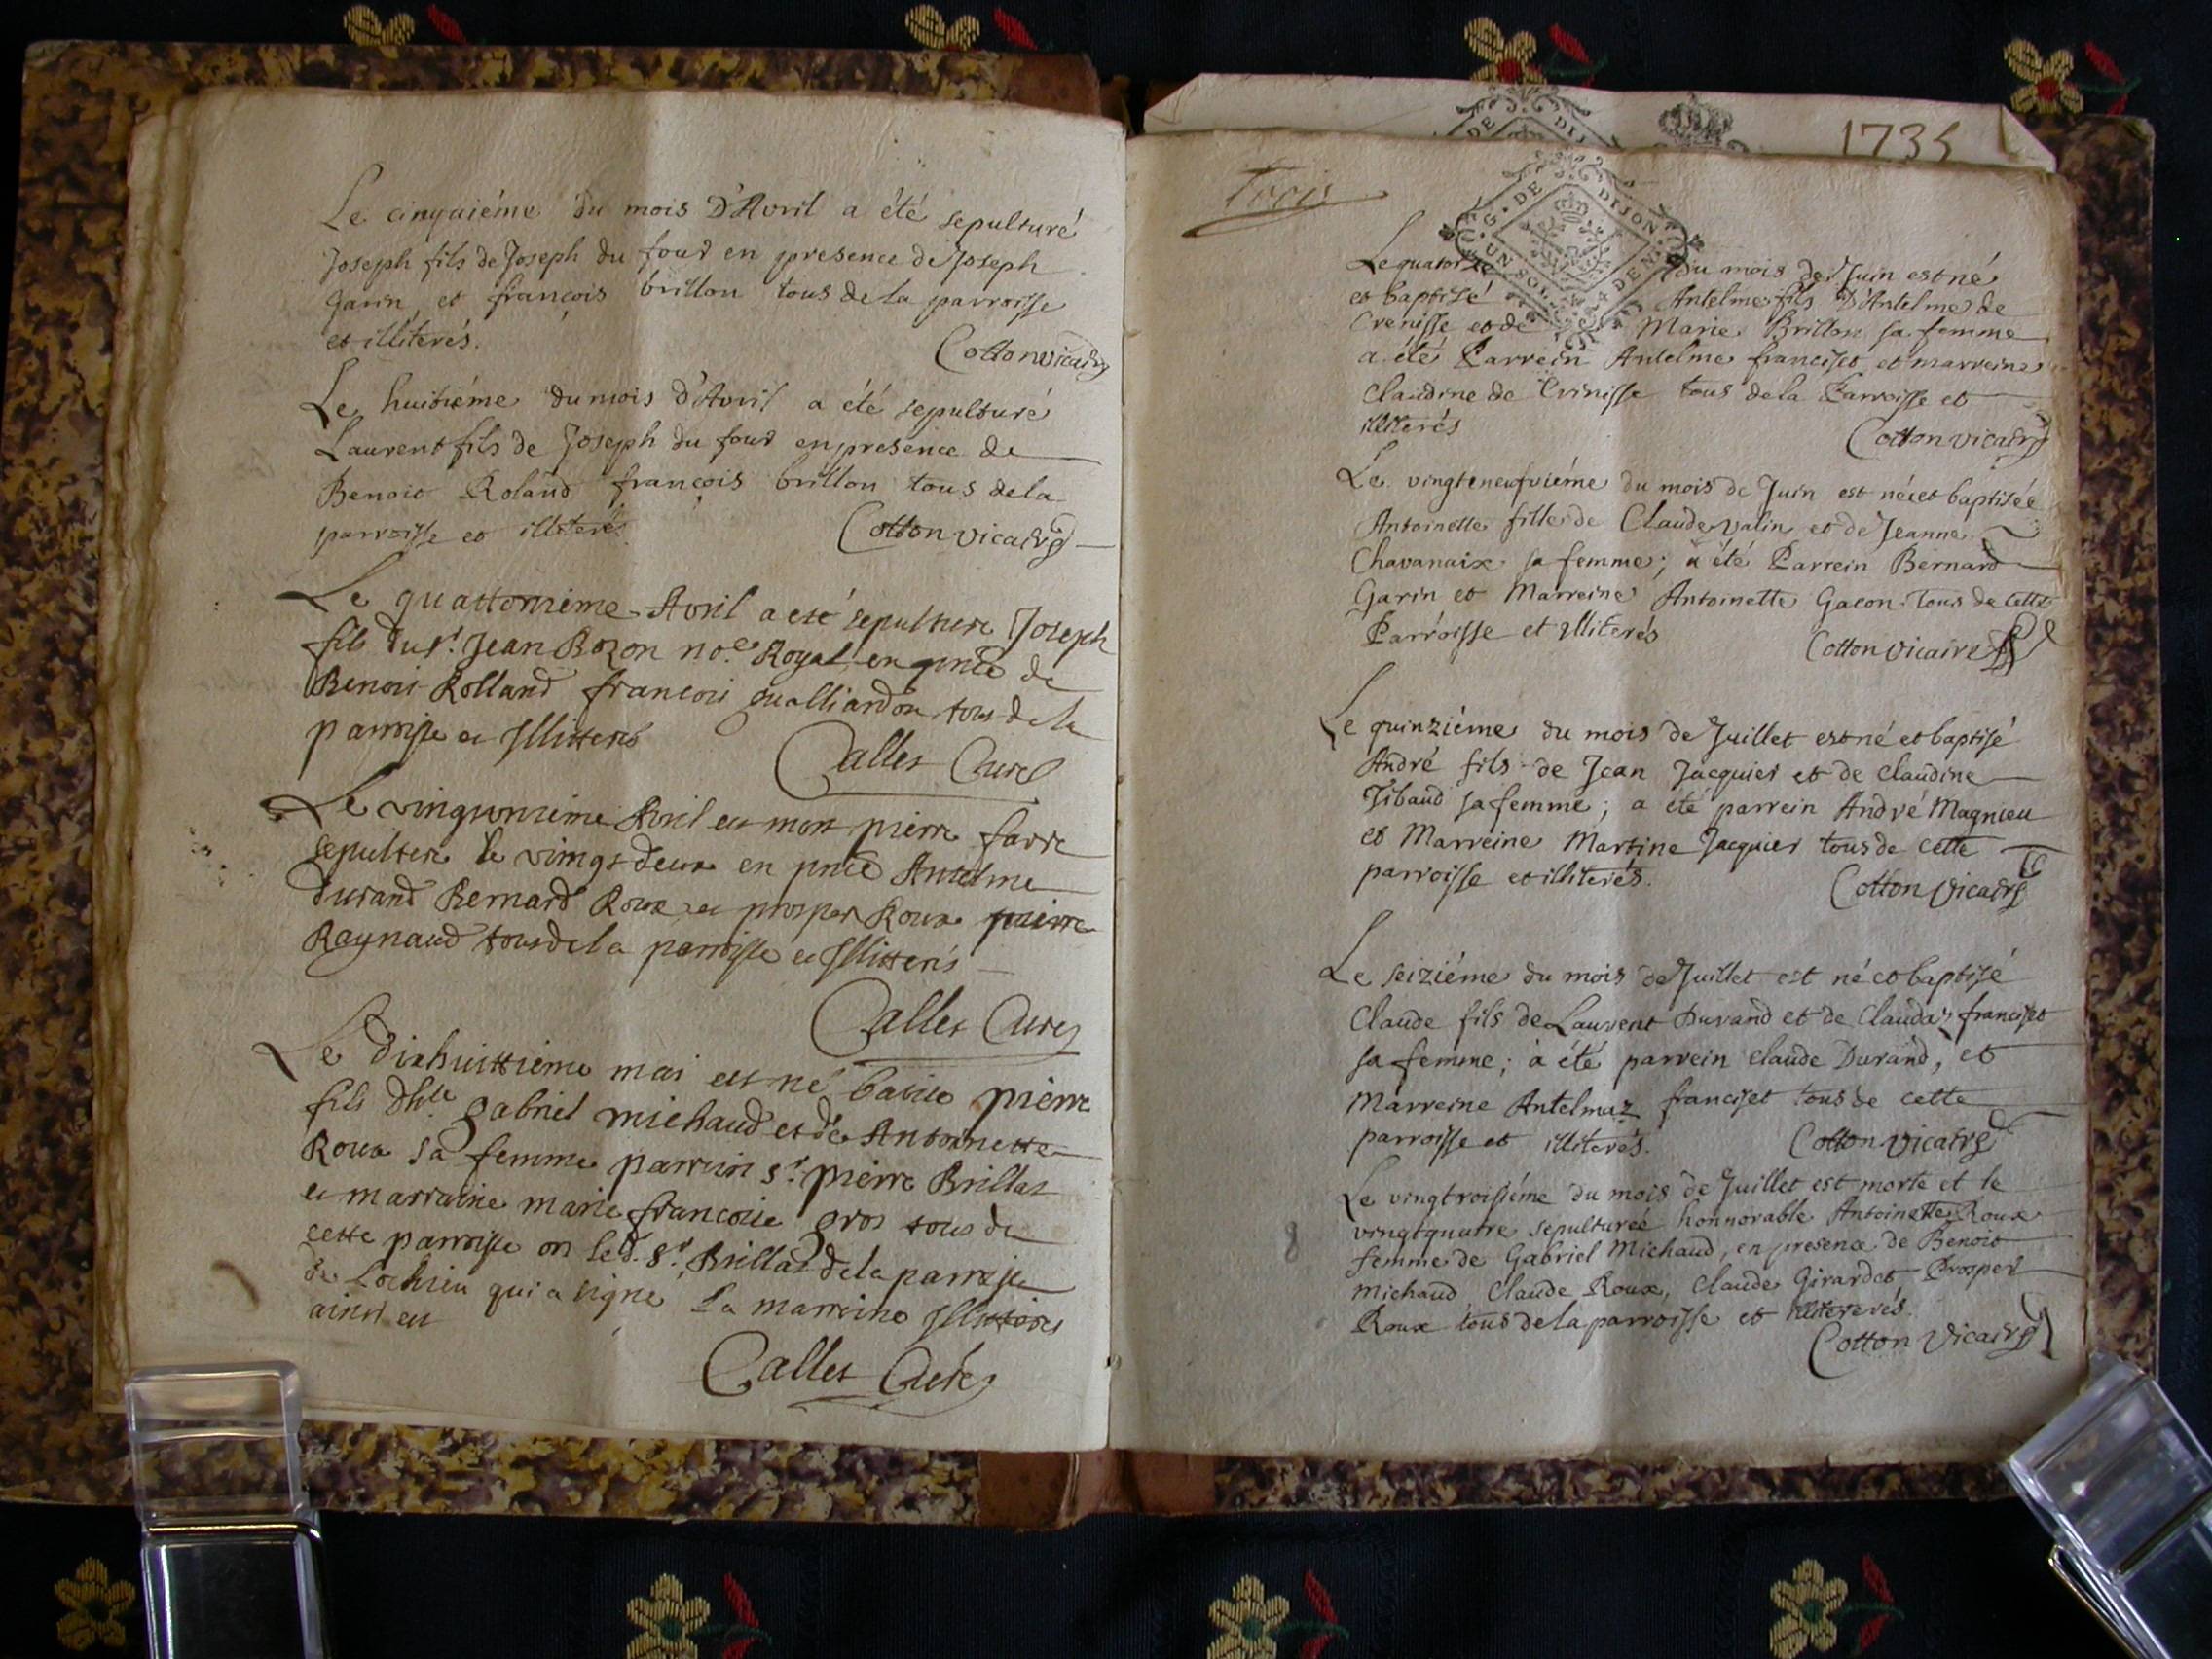 Le cinquiéme du mois D'Avril a été sepulturé
Joseph fils de Joseph du four en presence de Joseph
Garin et françois brillon tous de la parroisse
et illiterés.
Cotton vicaire
Le huitiéme du mois d'Avril a été sepulturé
Laurent fils de Joseph du four en presence de
Benoit Roland françois brillon tous de la
parroisse et illiterés
Cotton vicaire
Le quattorzieme Avril a esté sepulture Joseph
fils du sr. Jean Bozon noe. Royal en pnce de
Benoit Rolland francois gualliardon tous de la
parroisse et Illitterés
Calles Curé
Le vingtunzieme Avril est mort pierre farre
sepulture le vingt deux en pnce Antelme
durand Bernard Roux et prosper Roux pierre
Raynaud tous de la parroisse et Illitterés
Calles Curé
Le dixhuittieme mai est né batisé pierre
fils dhle gabriel michaud et de Antoinette
Roux sa femme parrein sr. pierre Brillat
et marraine marie francoise gros tous de
cette parroisse on led. Sr. Brillat de la parroisse
de Lochieu qui a signé La marreine Illitterés
ainsi est
Calles Curé
1735
Trois
G. DE DIJON
UN SOL 4 DEN
DE DIJ
Le quatorze du mois de Juin est né
et baptisé Antelme fils D'Antelme de
Crenisse et de Marie Brillon sa femme
a été Parrein Antelme franciset et marreine
Claudine de Crinisse tous de la Parroisse et
illiterés
Cotton vicaire
Le vingteneufviéme du mois de Juin est née et baptisée
Antoinette fille de Claude valin et de Jeanne
Chavanaix sa femme; a été Parrein Bernard
Garin et Marreine Antoinette Gacon tous de cette
Parroisse et illiterés
Cotton vicaire
Le quinziéme du mois de Juillet est né et baptisé
André fils de Jean Jacquier et de claudine
Tibaud sa femme; a été parrein André Magnieu
et Marreine Martine Jacquier tous de cette
parroisse et illiterés.
Cotton vicaire
Le seiziéme du mois de Juillet est né et baptisé
Claude fils de Laurent Durand et de Claudaz franciset
sa femme; à été parrein claude Durand, et
Marreine Antelmaz franciset tous de cette
parroisse et illiterés.
Cotton vicaire
Le vingtroisiéme du mois de Juillet est morte et le
vingtquatre sepulturée honnorable Antoinette Roux
femme de Gabriel Michaud, en presence de Benoit
Michaud Claude Roux, Claude Girardet Prosper
Roux tous de la parroisse et illiterés.
Cotton Vicaire
8